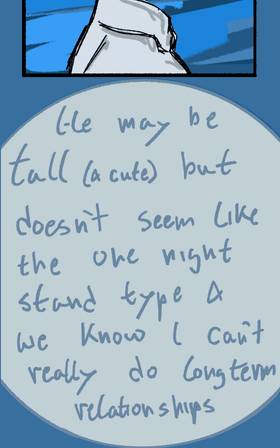 He may be
tall (& cute) but
doesn't seem like
the one night
stand type &
we know I can't
really do longterm
relationships